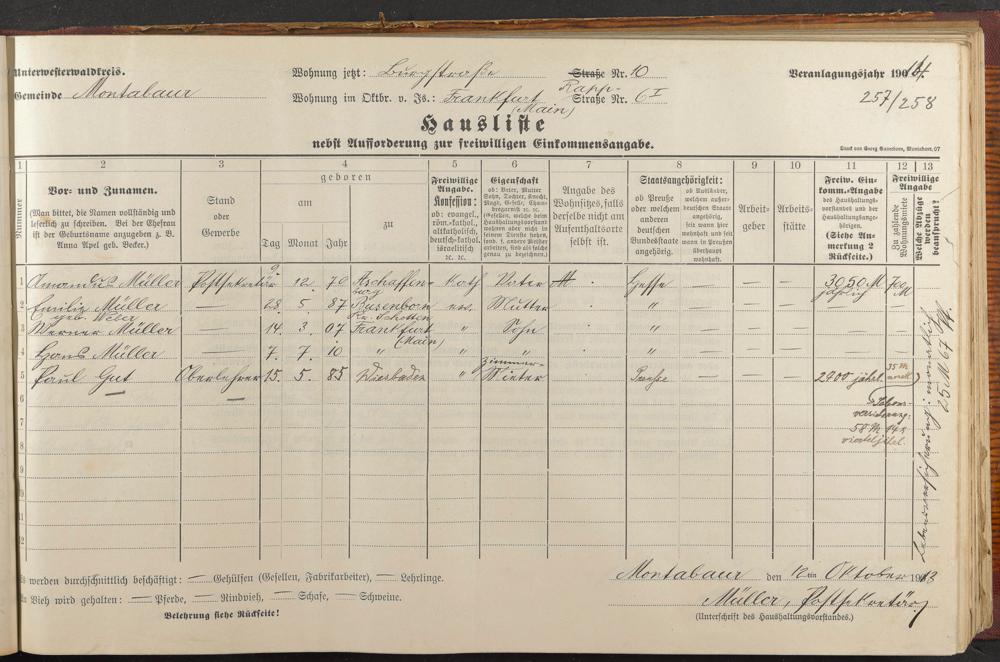 Unterwesterwaldkreis. Wohnung jetzt: Burgstraße Straße Nr. 10 Veranlagungsjahr 1914
Gemeinde Montabaur Wohnung im Oktbr. v. Js.: Frankfurt (Main) Rapp- Straße Nr. 6 I 257/258
Hausliste
nebst Aufforderung zur freiwilligen Einkommensangabe.
1 2 3 4 5 6 7 8 9 10 11 12 13
Nummer
Vor- und Zunamen.
(Man bittet, die Namen vollständig und
leserlich zu schreiben. Bei der Ehefrau
ist der Geburtsname anzugeben z. B.
Anna Apel geb. Becker.)
Stand
oder
Gewerbe
geboren
am
zu
Tag Monat Jahr
Freiwillige
Angabe.
Konfession:
ob: evangel.,
röm.-kathol.,
altkatholisch,
deutsch-kathol.
israelitisch
ꝛc. ꝛc.
Eigenschaft
ob: Vater, Mutter
Sohn, Tochter, Knecht,
Angabe des
Wohnsitzes, falls
derselbe nicht am
Aufenthaltsorte
selbst ist.
Staatsangehörigkeit:
ob Preuße
oder welchem
anderen
deutschen
Bundesstaate
angehörig.
ob Ausländer,
welchem außer-
deutschen Staate
angehörig,
seit wann hier
wohnhaft und seit
wann in Preußen
überhaupt
wohnhaft.
Arbeit-
geber
Arbeits-
stätte
Freiw. Ein-
komm.-Angabe
des Haushaltungs-
vorstandes und der
Haushaltungsange-
hörigen.
(Siehe An-
merkung 2
Rückseite.)
Freiwillige
Angabe
Zu zahlende
Wohnungsmiete
Welche Abzüge
werden
beansprucht?
1 Amandus Müller Postsekretär 9. 12. 79 Aschaffenburg Kath Vater Hesse — — 3050 M jährlich 700 M
2 Emilie Müller — 28. 5. 87 ev. Mutter " — —
geb.
3 Werner Müller — 14. 3. 07 Frankfurt (Main) " Sohn " — — — —
4 Hans Müller — 7. 7. 10 " " " " — — — —
5 Paul Gut Oberlehrer 15. 5. 85 Wiesbaden " Zimmer-Mieter Preuße — — 2900 jährl. 35 M
6
7
58 M
8
vierteljährl.
9
10
11
12
Lebensversicherung: monatlich
25 M 67 Pf.
Es werden durchschnittlich beschäftigt: — Gehülfen (Gesellen, Fabrikarbeiter), — Lehrlinge.
An Vieh wird gehalten: — Pferde, — Rindvieh, — Schafe, — Schweine.
Belehrung siehe Rückseite!
Montabaur den 12ten Oktober 1913
Müller, Postsekretär
(Unterschrift des Haushaltungsvorstandes.)